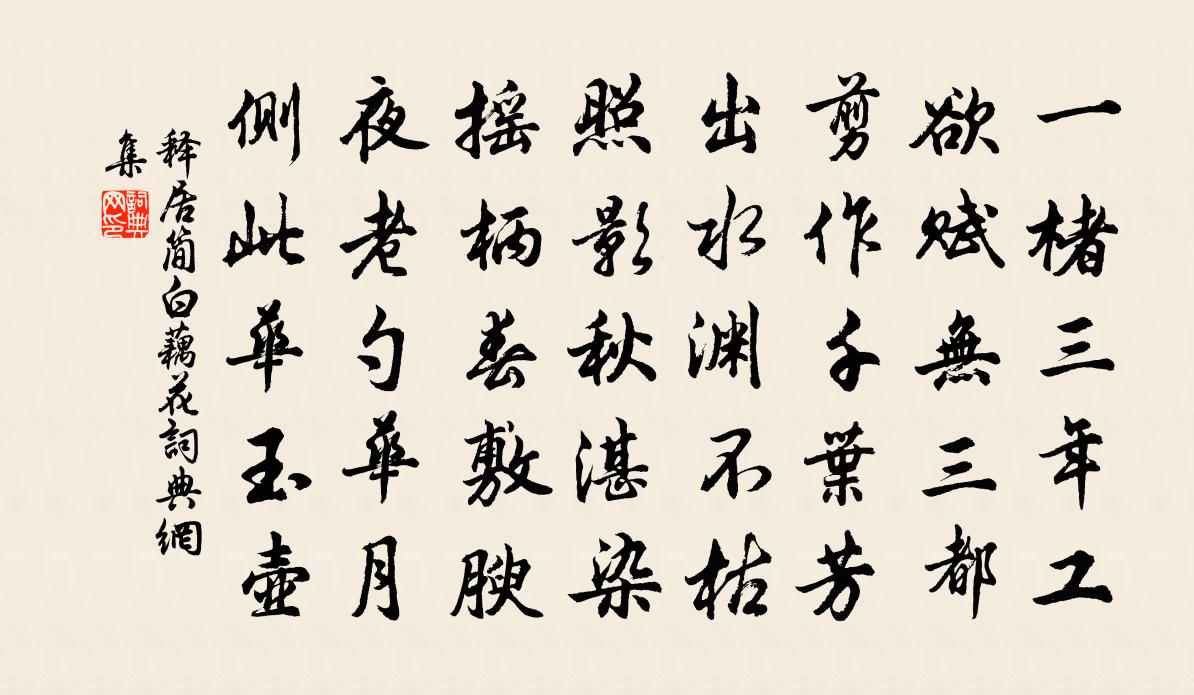 一楮三年工
欲賦無三都
剪作千葉芳
出水渊不枯
照影秋湛染
摇柄春敷腴
夜老勺華月
側此華玉壺
释居簡白藕花詞典網
集
詞典
网印